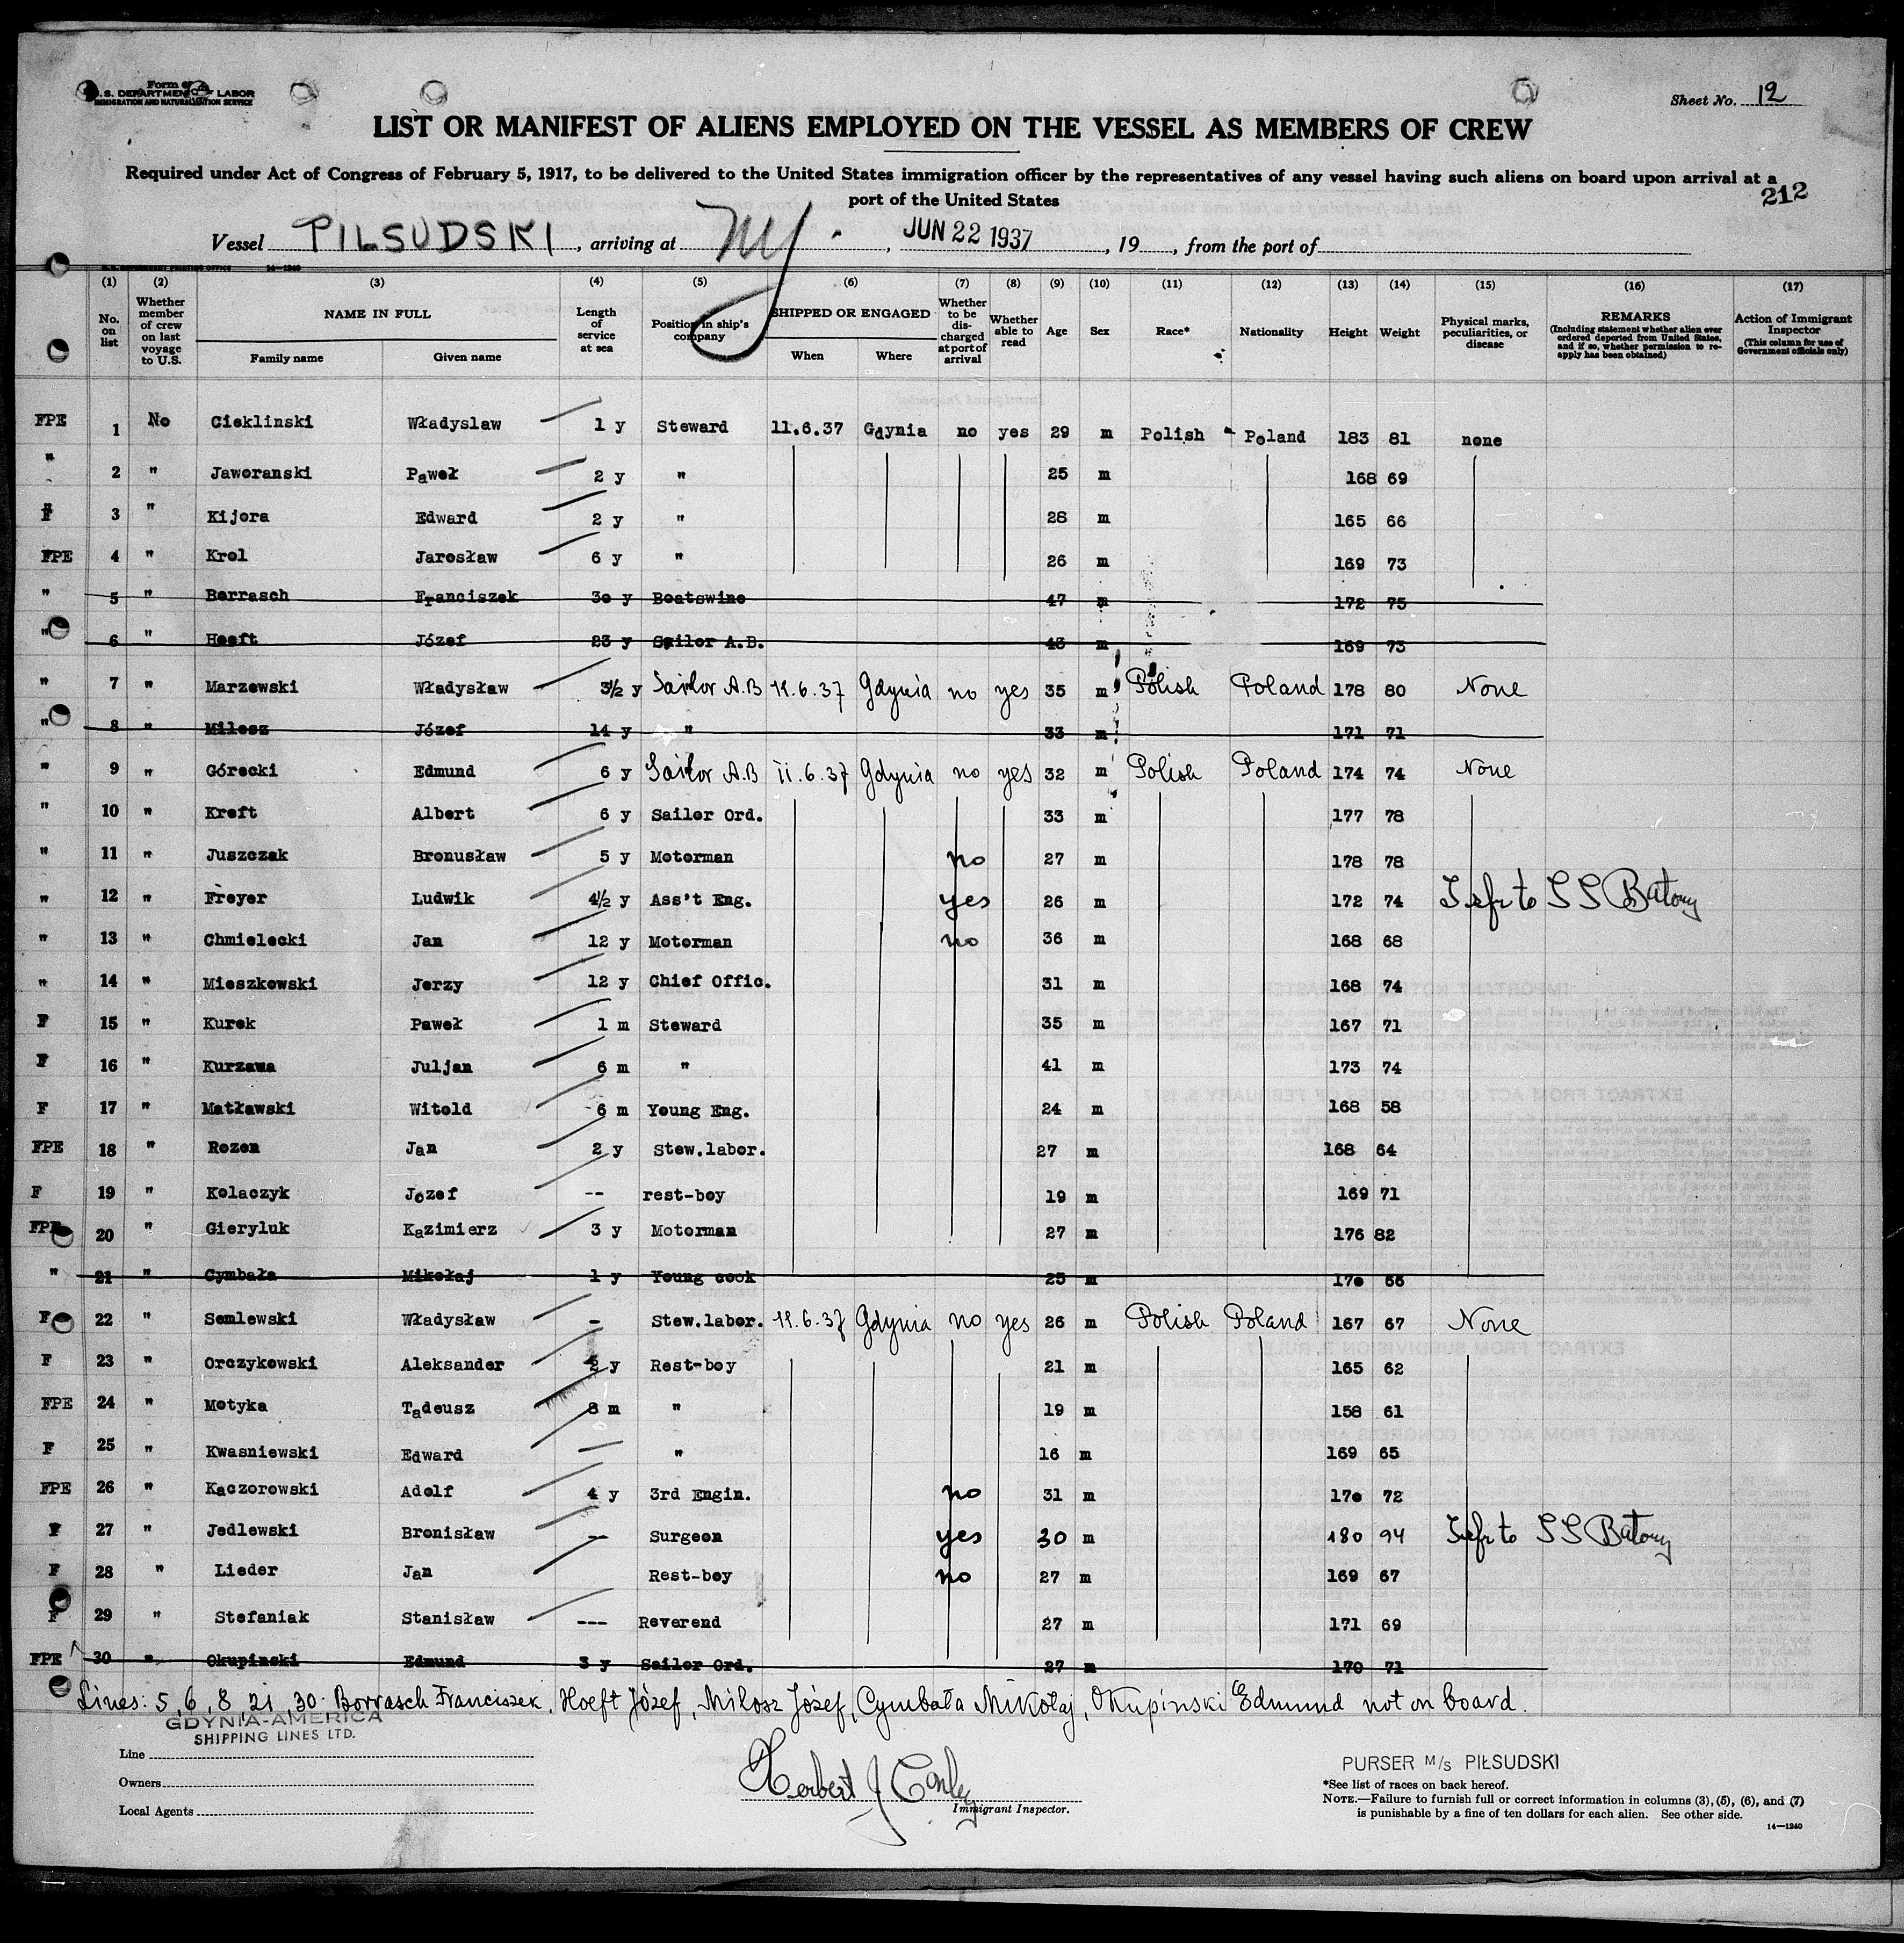 Form 680
U.S. DEPARTMENT OF LABOR
IMMIGRATION AND NATURALIZATION SERVICE
Sheet No. 12
LIST OR MANIFEST OF ALIENS EMPLOYED ON THE VESSEL AS MEMBERS OF CREW
Required under Act of Congress of February 5, 1917, to be delivered to the United States immigration officer by the representatives of any vessel having such aliens on board upon arrival at a
port of the United States
212
Vessel PILSUDSKI, arriving at NY., JUN 22 1937, 19, from the port of
U. S. GOVERNMENT PRINTING OFFICE 14-1240
(1) (2) (3) (4) (5) (6) (7) (8) (9) (10) (11) (12) (13) (14) (15) (16) (17)
No. on list
Whether member of crew on last voyage to U.S.
NAME IN FULL
Family name Given name
Length of service at sea
Position in ship's company
SHIPPED OR ENGAGED
When Where
Whether to be discharged at port of arrival
Whether able to read
Age
Sex
Race*
Nationality
Height
Weight
Physical marks, peculiarities, or disease
REMARKS
(Including statement whether alien ever ordered deported from United States, and if so, whether permission to reapply has been obtained)
Action of Immigrant Inspector
(This column for use of Government officials only)
FPE 1 No Cieklinski Władyslaw 1 y Steward 11.6.37 Gdynia no yes 29 m Polish - Poland 183 81 none
" 2 " Jaworanski Paweł 2 y " 25 m 168 69
F 3 " Kijora Edward 2 y " 28 m 165 66
FPE 4 " Krol Jarosław 6 y " 26 m 169 73
" 5 " Borrasch Franciszek 30 y Boatswine 47 m 172 75
" 6 " Hoeft Józef 23 y Sailor A.B. 43 m 169 73
" 7 " Marzewski Władysław 3½ y Sailor A.B 11.6.37 Gdynia no yes 35 m Polish Poland 178 80 None
" 8 " Milosz Józef 14 y " 33 m 171 71
" 9 " Górecki Edmund 6 y Sailor A.B 11.6.37 Gdynia no yes 32 m Polish Poland 174 74 None
" 10 " Kreft Albert 6 y Sailor Ord. 33 m 177 78
" 11 " Juszczak Bronusław 5 y Motorman no 27 m 178 78
" 12 " Freyer Ludwik 4½ y Ass't Eng. yes 26 m 172 74 Tsfr to SS Batory
" 13 " Chmielecki Jan 12 y Motorman no 36 m 168 68
" 14 " Mieszkowski Jerzy 12 y Chief Offic. 31 m 168 74
F 15 " Kurek Paweł 1 m Steward 35 m 167 71
F 16 " Kurzawa Juljan 6 m " 41 m 173 74
F 17 " Matławski Witold 6 m Young Eng. 24 m 168 58
FPE 18 " Rozen Jan 2 y Stew.labor. 27 m 168 64
F 19 " Kolaczyk Jozef -- rest-boy 19 m 169 71
FPE 20 " Gieryluk Kazimierz 3 y Motorman 27 m 176 82
" 21 " Cymbała Mikołaj 1 y Young cook 25 m 170 66
F 22 " Semlewski Władysław - Stew.labor. 11.6.37 Gdynia no yes 26 m Polish Poland 167 67 None
F 23 " Orczykowski Aleksander 2 y Rest-boy 21 m 165 62
FPE 24 " Motyka Tadeusz 8 m " 19 m 158 61
F 25 " Kwasniewski Edward — " 16 m 169 65
FPE 26 " Kaczorowski Adolf 4 y 3rd Engin. no 31 m 170 72
F 27 " Jedlewski Bronisław -- Surgeon yes 30 m 180 94 Tsfr to SS Batory
F 28 " Lieder Jan Rest-boy no 27 m 169 67
F 29 " Stefaniak Stanisław --- Reverend 27 m 171 69
FPE 30 " Okupinski Edmund 3 y Sailor Ord. 27 m 170 71
Lines: 5, 6, 8, 21, 30. Borrasch Franciszek, Hoeft Józef, Milosz Józef, Cymbała Mikołaj, Okupinski Edmund not on board.
GDYNIA-AMERICA
SHIPPING LINES LTD.
Line
Owners
Local Agents
Herbert J Conley
Immigrant Inspector.
PURSER M/S PIŁSUDSKI
*See list of races on back hereof.
NOTE.—Failure to furnish full or correct information in columns (3), (5), (6), and (7)
is punishable by a fine of ten dollars for each alien. See other side.
14—1240